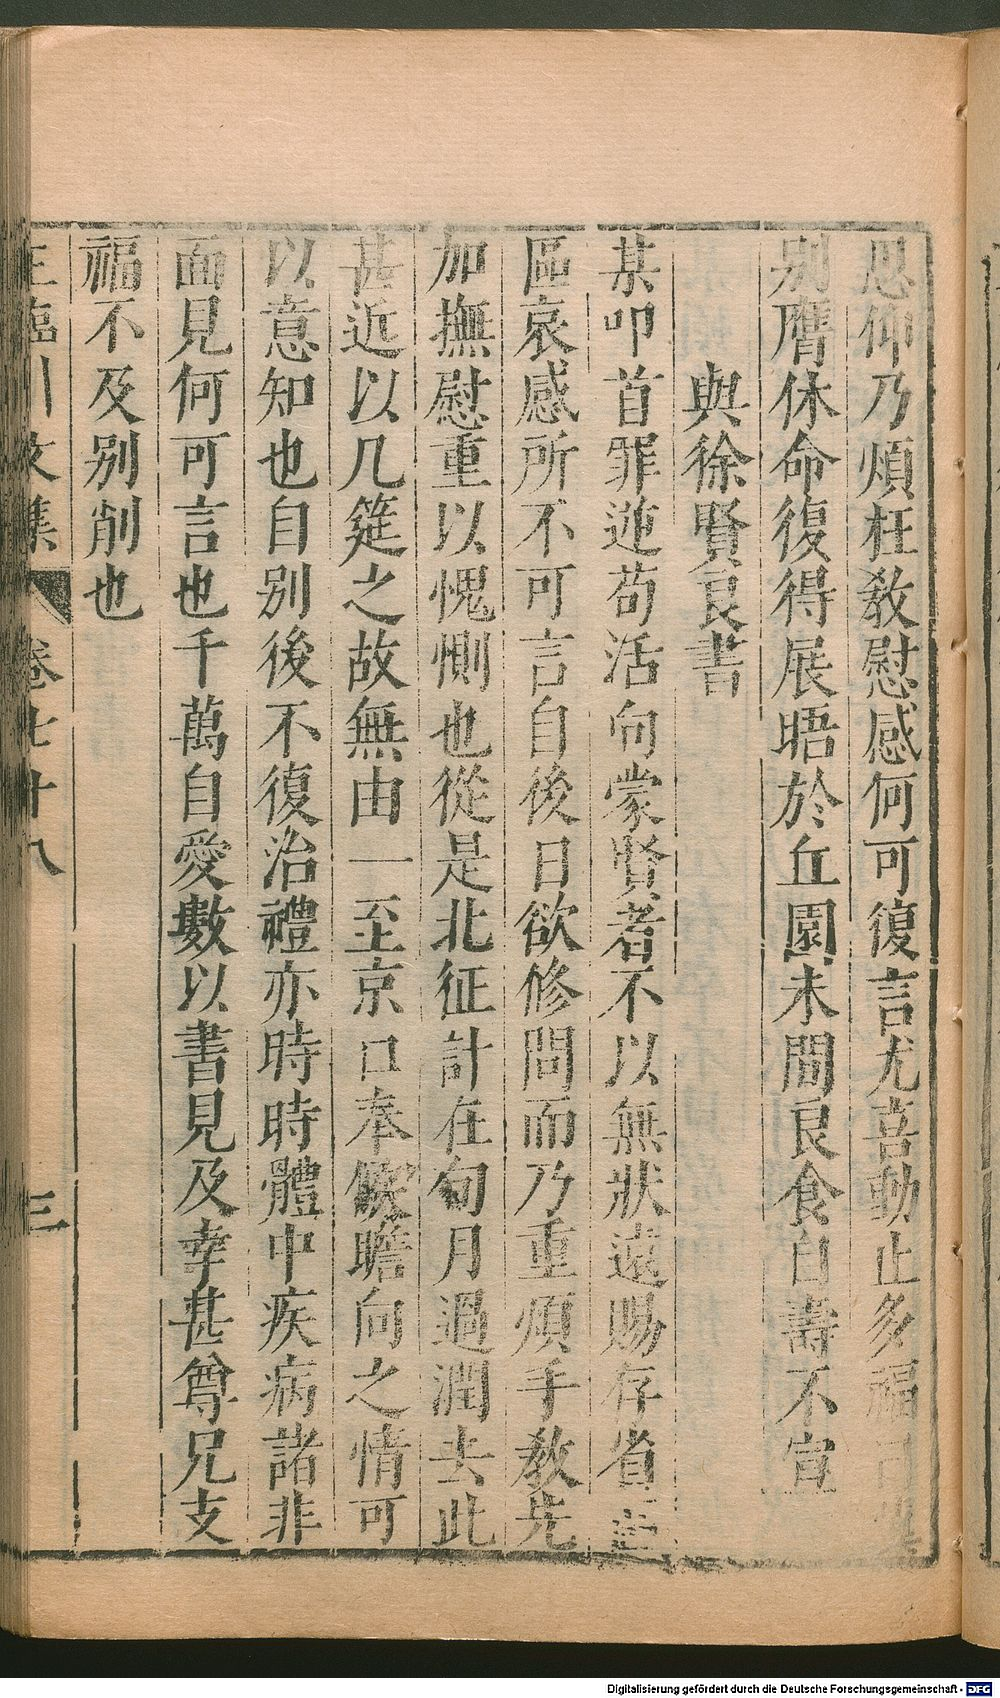 思仰乃煩枉教慰感何可復言尤喜動止多福
别膺休命復得展晤於丘園未間良食自壽不宣
與徐賢良書
某叩首罪逆苟活向蒙賢者不以無狀遠賜存省
區哀感所不可言自後日欲修問而乃重煩手教先
加撫慰重以愧惻也從是北征計在旬月過潤去此
甚近以几筵之故無由一至京口奉瞻向之情可
以意知也自别後不復治禮亦時時體中疾病諸非
面見何可言也千萬自愛數以書見及幸甚尊兄支
福不及别削也
王臨川文集 卷七十八 三
Digitalisierung gefördert durch die Deutsche Forschungsgemeinschaft - DFG